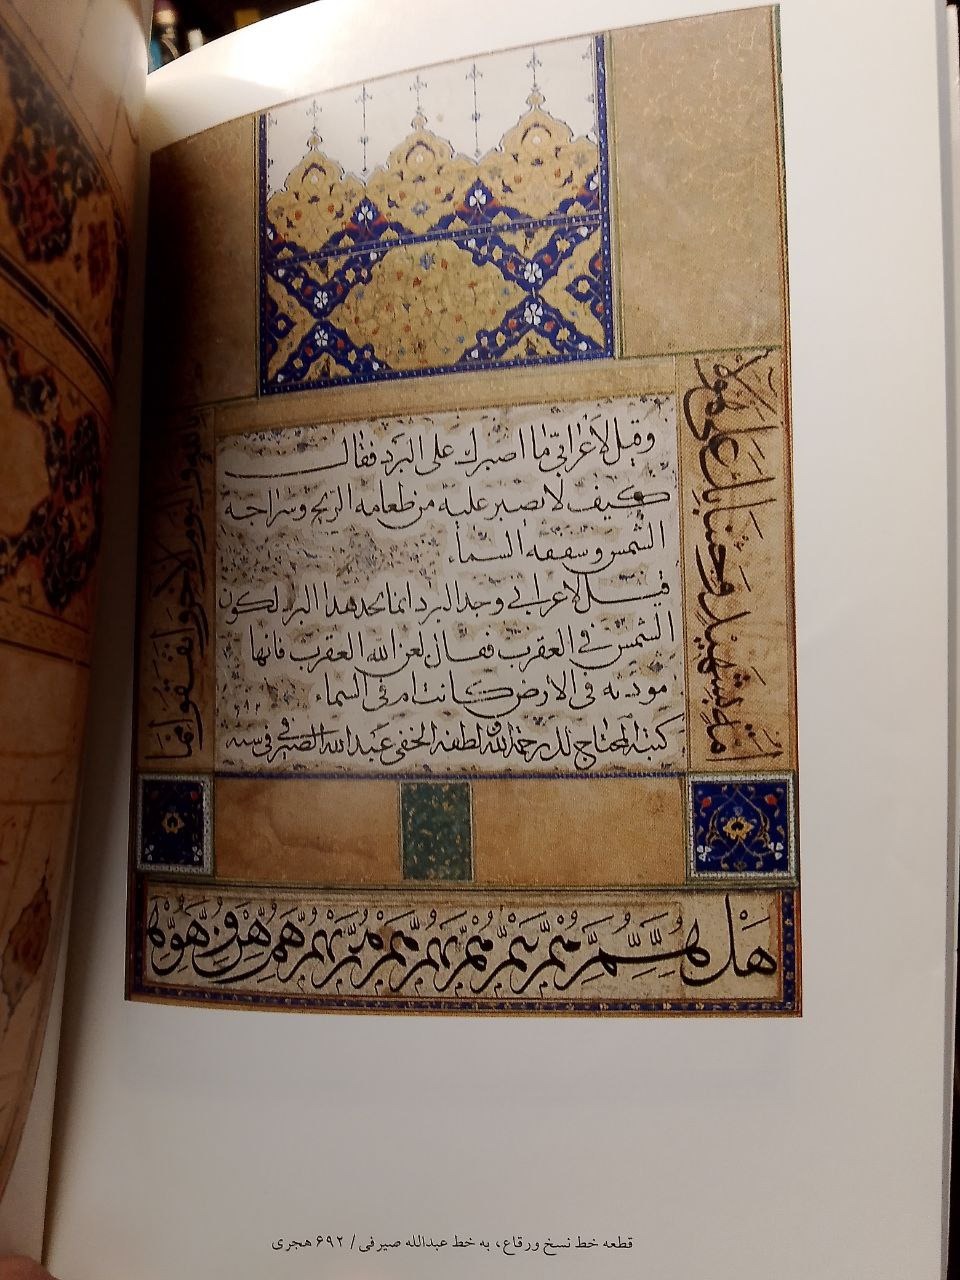 وقيل لأعرابي ما اصبرك على البرد فقال
كيف لا يصبر عليه من طعامه الريح وسراجه
الشمس وسقفه السماء
قيل لاعرابي وجد البرد انما يجد هذا البرد لكون
الشمس في العقرب فقال لعن الله العقرب فانها
موذيه في الارض كانت ام في السماء
كتبه المحتاج لذي رحمة الله ولطفه الخفي عبد الله الصيرفي في سنه
امة بشهيد وجئنا بك على هؤلاء
بالله واليوم الاخر وانفقوا مما
قطعه خط نسخ و رقاع، به خط عبدالله صیرفی / ۶۹۲ هجری